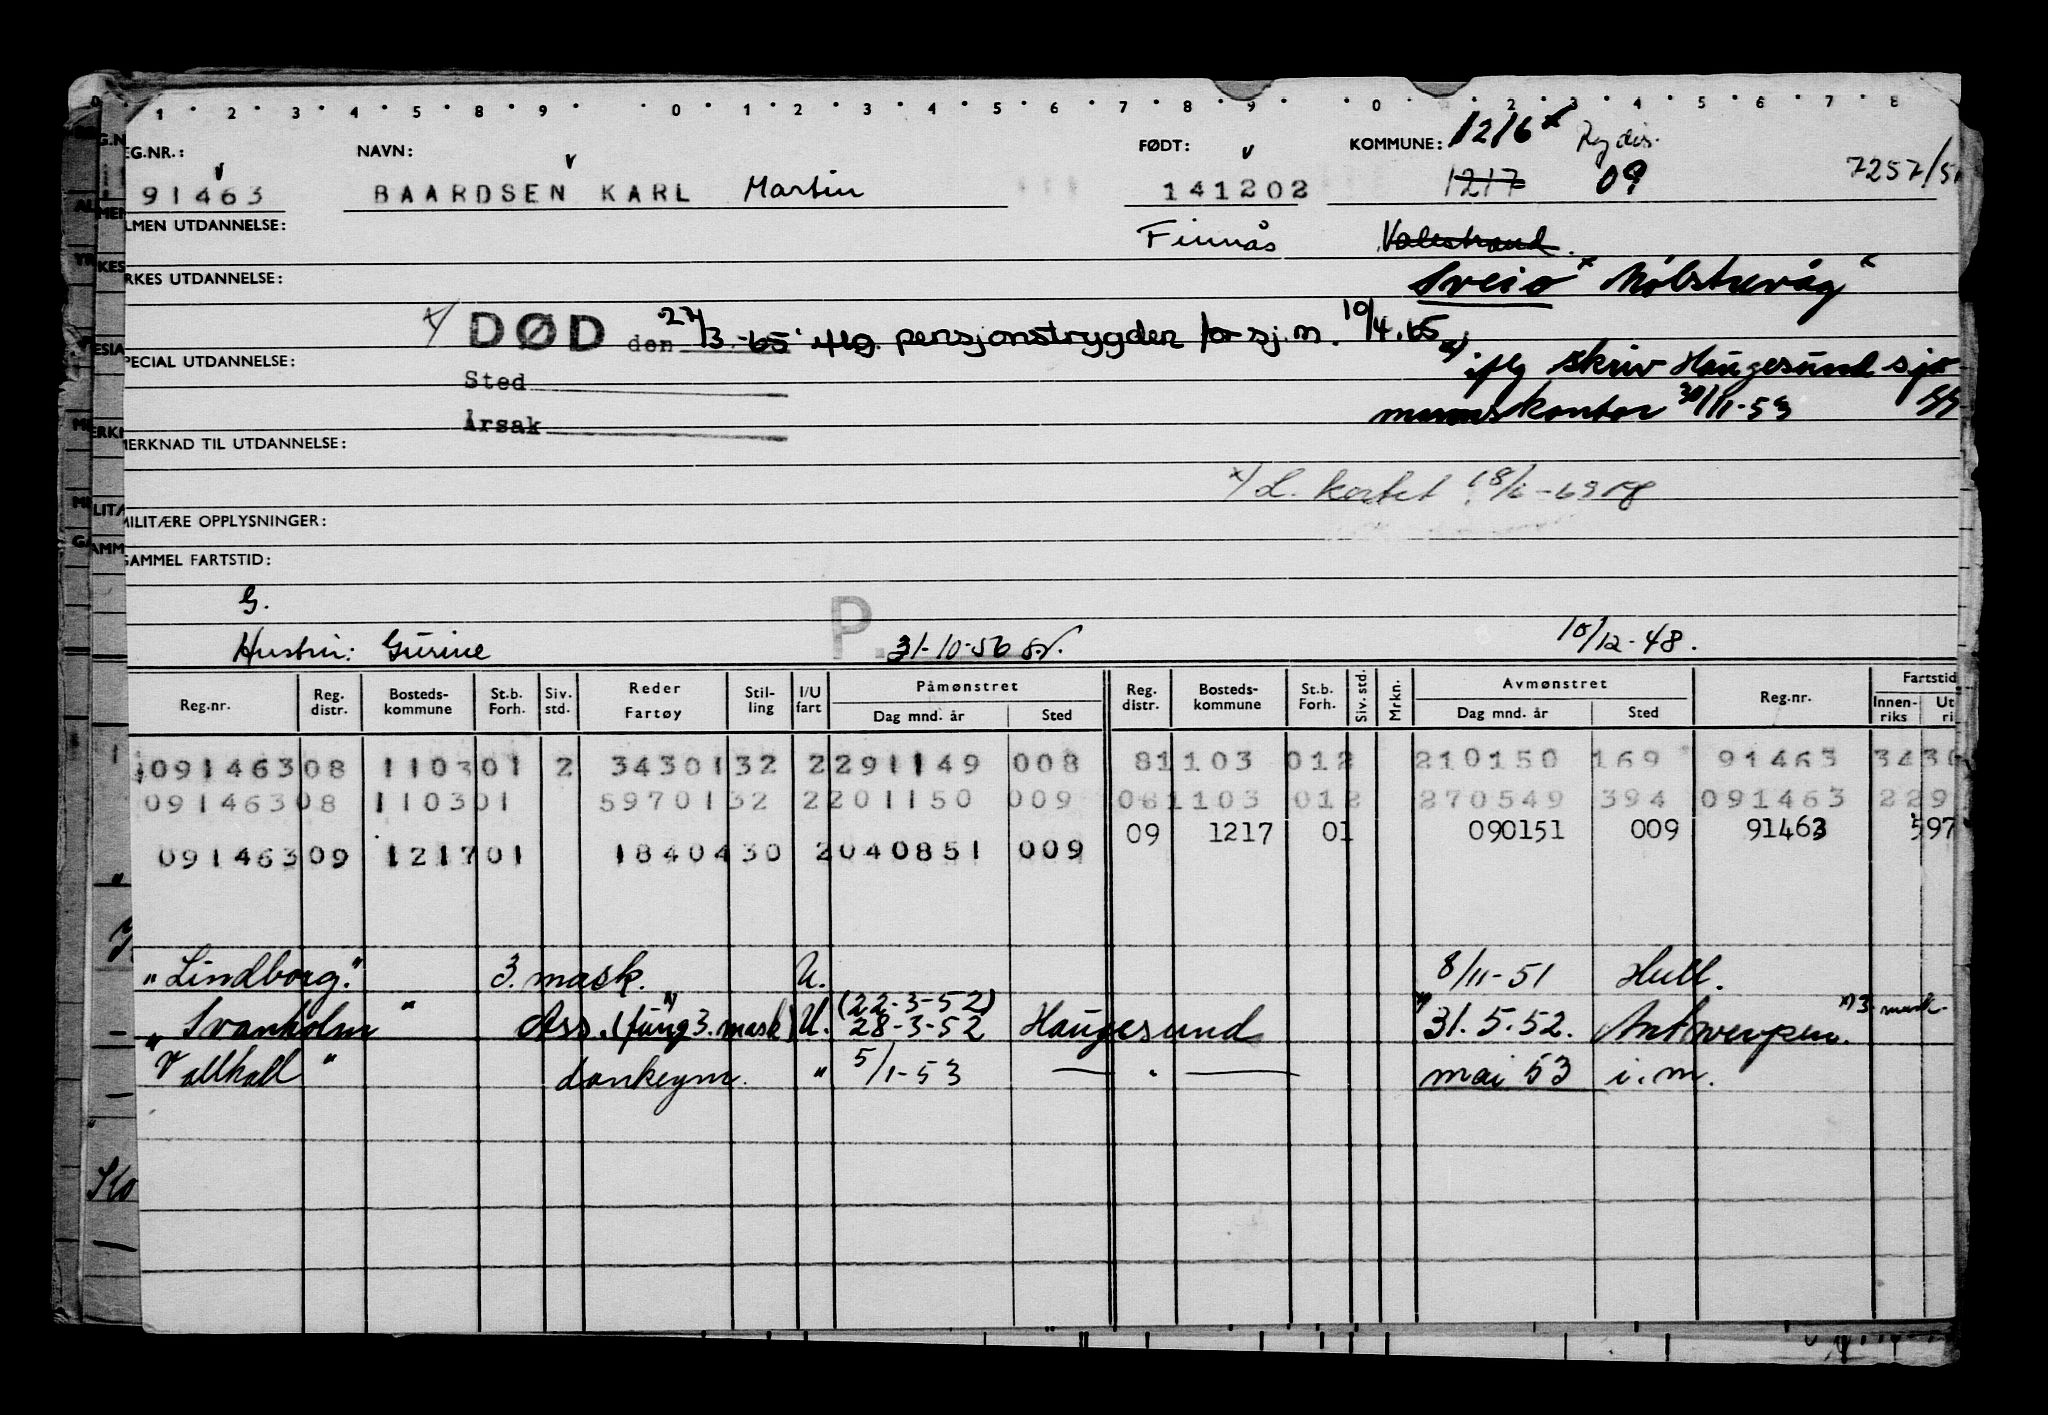 1 2 3 4 5 8 9 0 1 2 3 4 5 6 7 8 9 0 2 3 4 5 6 7 8
EG.NR.: NAVN: FØDT: KOMMUNE: 1216 x
91463 BAARDSEN KARL Martin 141202 1217 09 7257/5
LMEN UTDANNELSE: Finnås Valestrand.
RKES UTDANNELSE: Sveio x Mølstrevåg "
x/ DØD den 27/3-65 iflg. pensjonstrygden for sj.m. 10/4.65
PECIAL UTDANNELSE: x) iflg skriv Haugesund sjø
Sted
mannskontor 30/11-53
Årsak
MERKNAD TIL UTDANNELSE:
x/ L. kortet 18/6-69
MILITÆRE OPPLYSNINGER:
GAMMEL FARTSTID:
G.
Hustru: Gurine P. 31-10-56 10/12-48.
Reg.nr. Reg. distr. Bosteds- kommune St.b. Forh. Siv. std. Reder Fartøy Stil- ling I/U fart Påmønstret Dag mnd. år Sted Reg. distr. Bosteds- kommune St.b. Forh. Siv. std. Mrkn. Avmønstret Dag mnd. år Sted Reg.nr. Fartstid Innen- riks Ut ri
09146308 110301 2 3430132 2291149 008 81103 012 210150 169 91463 343
09146308 110301 5970132 2201150 009 081103 012 270549 394 091463 229
09 1217 01 090151 009 91463 597
09146309 121701 1840430 2040851 009
"Lindborg." 3. mask. U. 8/11-51 Hull.
"Svanholm" Ass. (fung 3. mask) U. (22-3-52) 28-3-52 Haugesund x) 31.5.52. Antwerpen. x) 3. mask.
"Vallhall" donkeym. " 5/1-53 — " — mai 53 i.m.